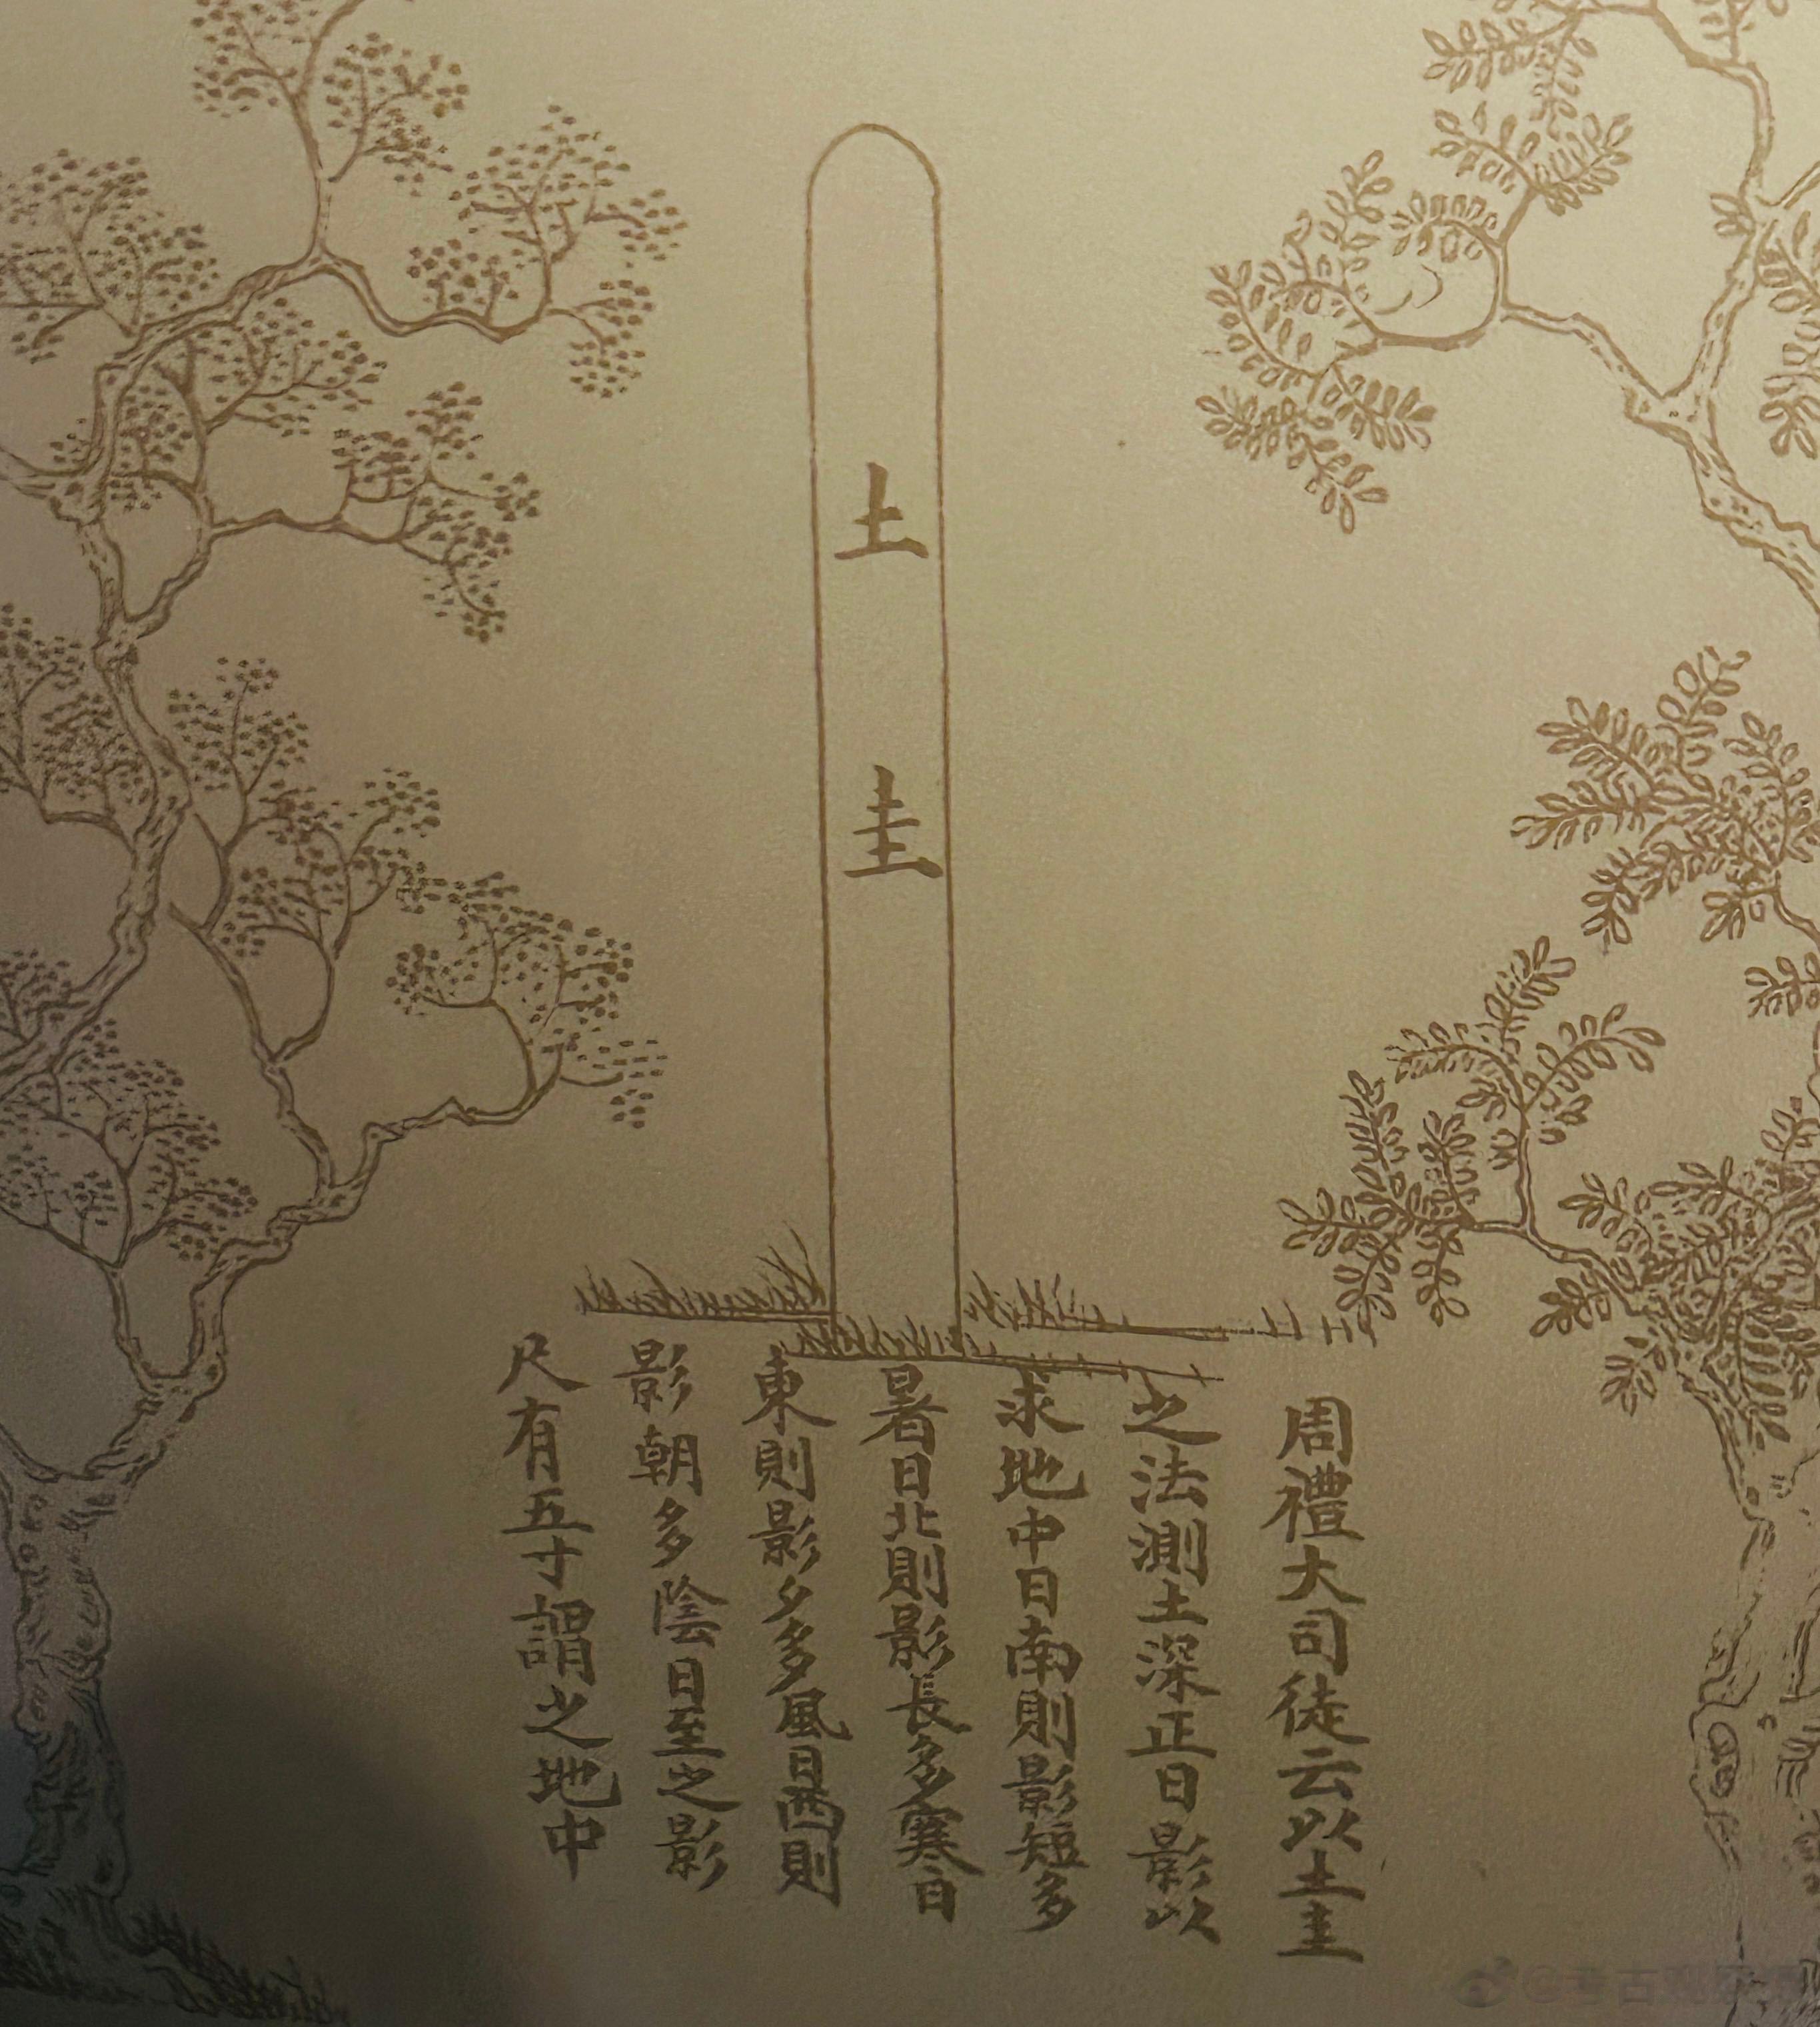 土圭
周禮大司徒云以土圭
之法測土深正日影以
求地中日南則影短多
暑日北則影長多寒日
東則影夕多風日西則
影朝多陰日至之影
尺有五寸謂之地中